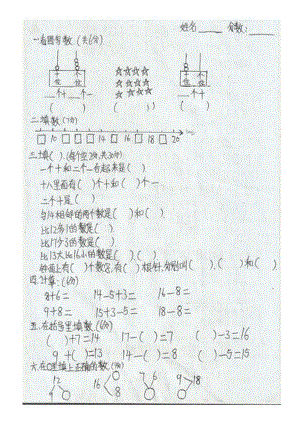 姓名____ 分数:____
一.看图写数(共6分)
十位 个位 十位 个位
__个十__个一 __个十__个一
( ) ( ) ( )
二.填数(7分)
□ 10 □ □ □ □ □ 16 □ 18 □ 20
三.填( ).(每个空2分,共30分)
一个十和二个一合起来是( ).
十八里面有( )个十和( )个一
二个十是( )
与14相邻的两个数是( )和( ).
比12多1的数是( )
比17少3的数是( )
比13大比16小的数是( )
钟面上有( )个数字,有( )根针,分别叫( ),( )和( )
四.计算:(6分)
8+6= 14-5+3= 16-8=
9+8= 15-5+3= 18-8=
五.在括号里填数(6分)
( )+7=14 17-( )=7 ( )-3=16
9+( )=13 14-( )=8 ( )-5=15
六.在○里填上正确的数(8分)
12 8 6 18
9 9